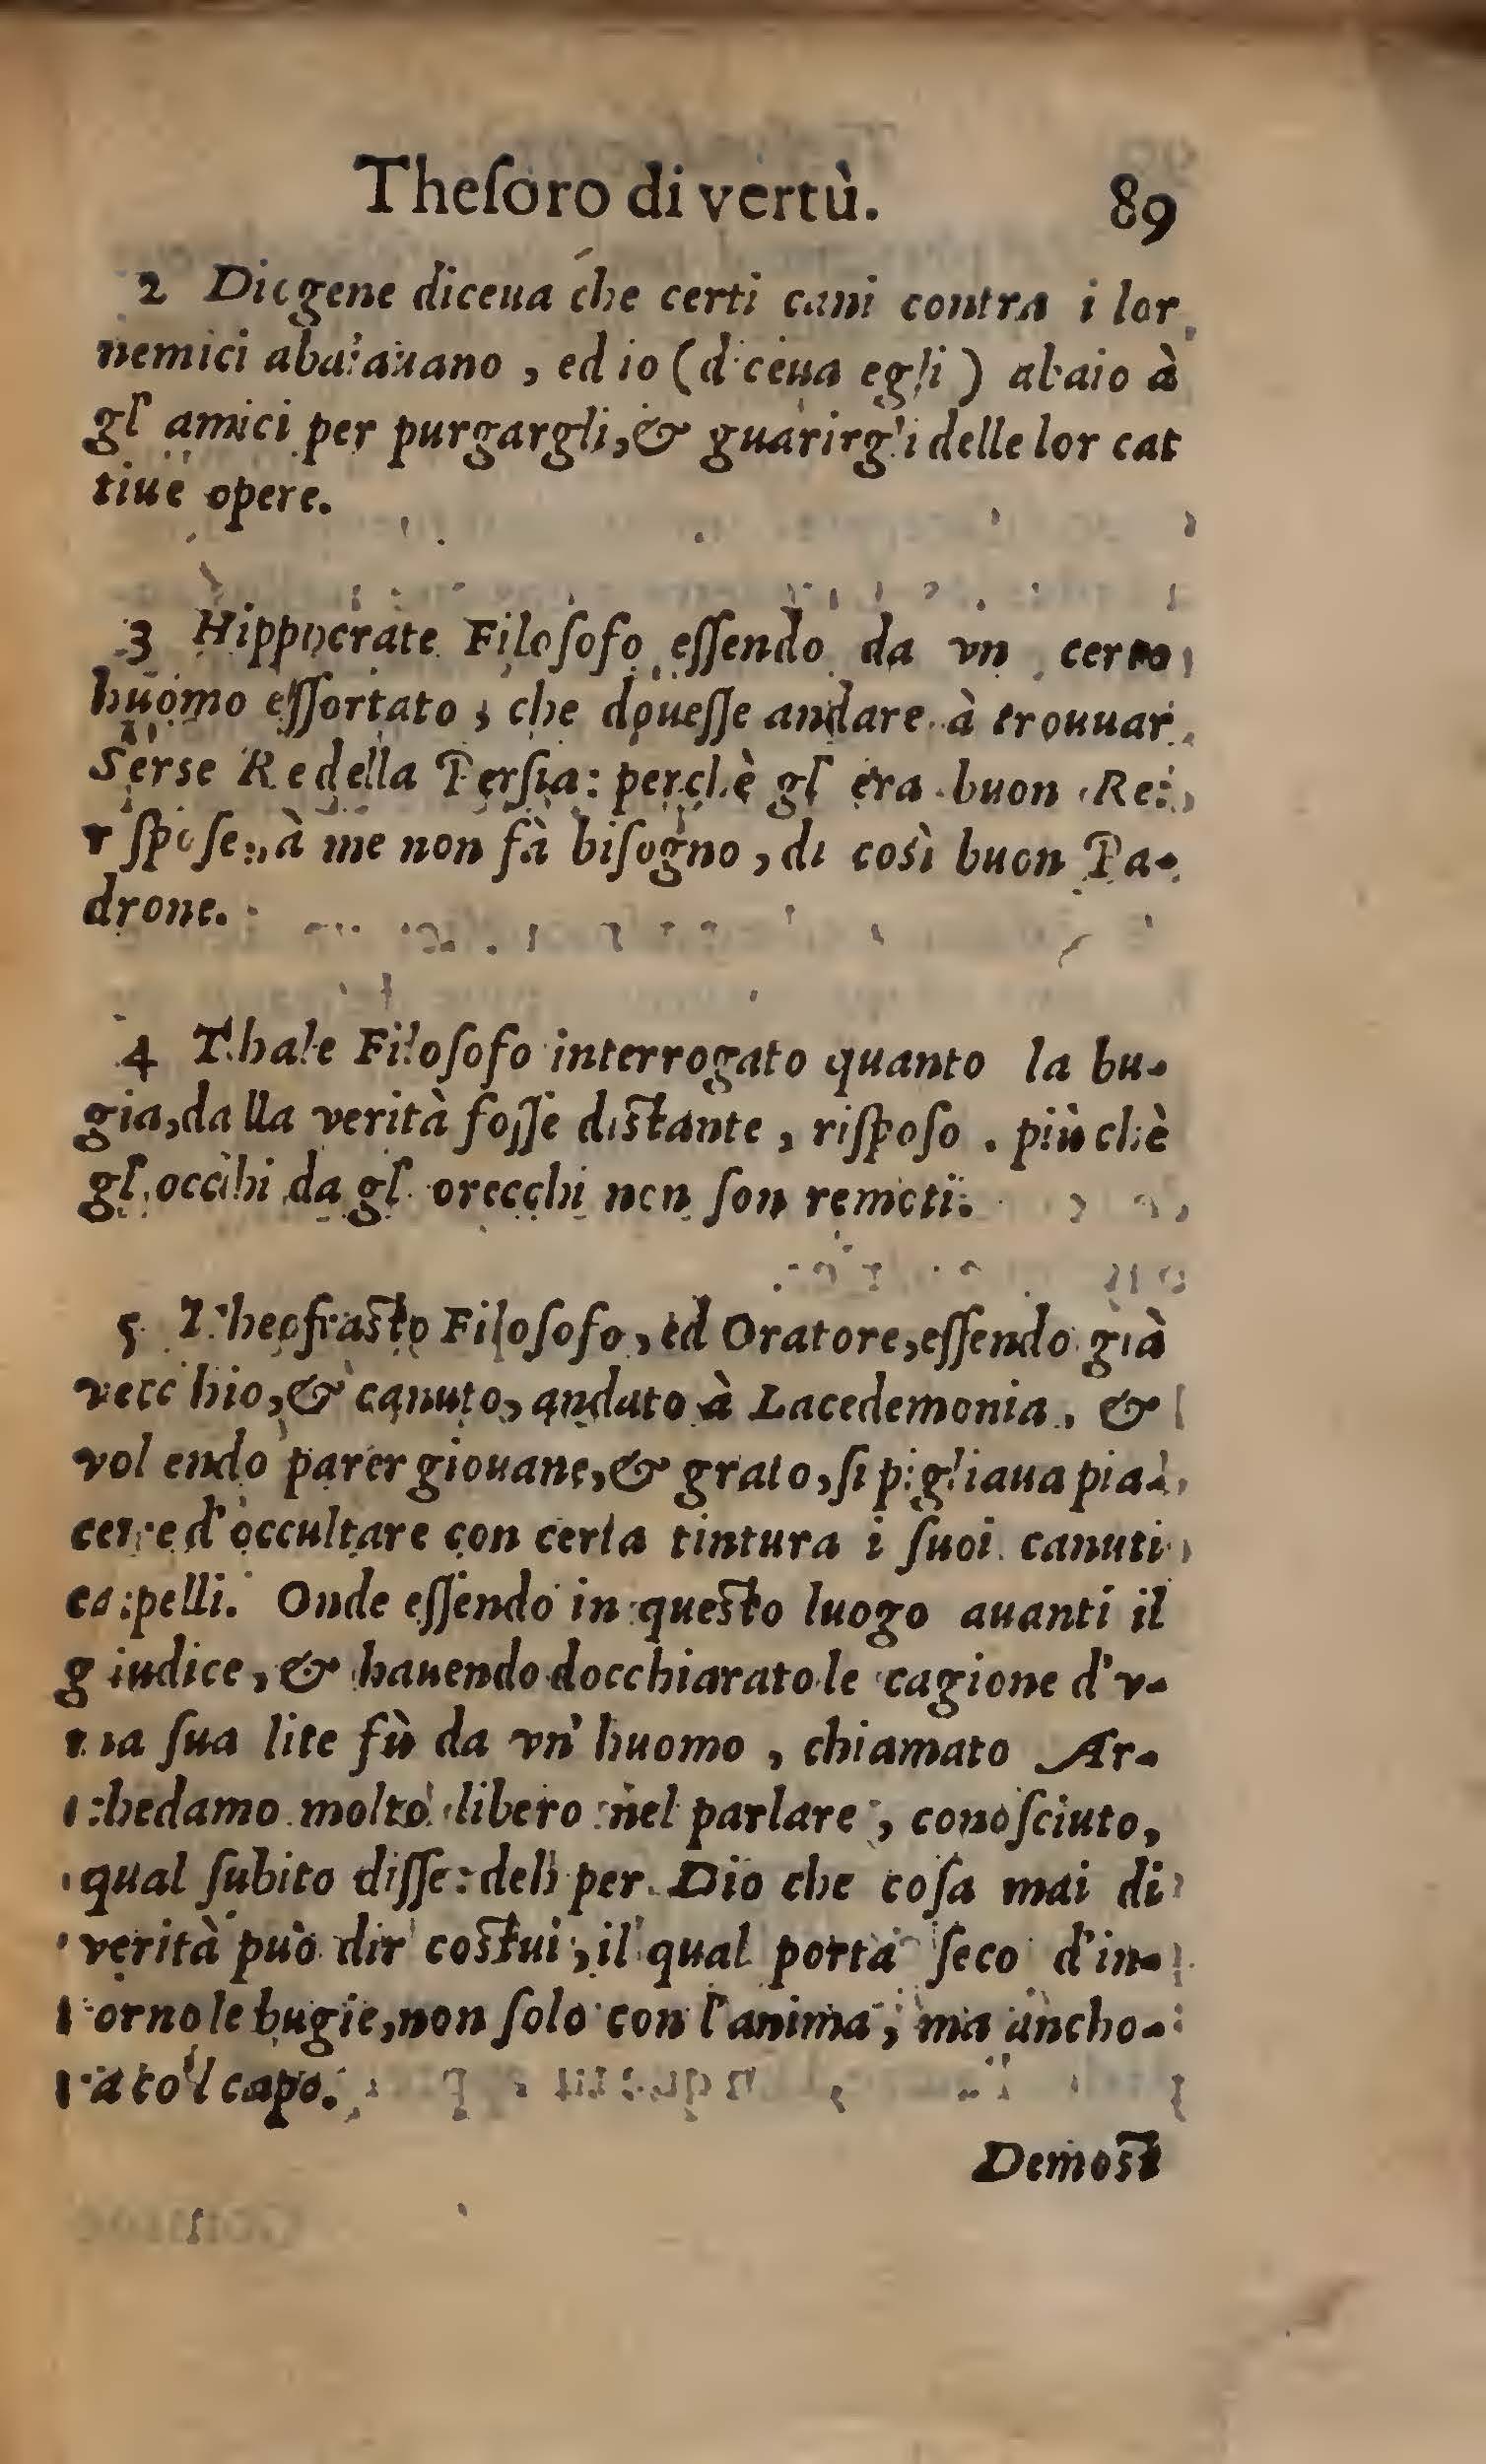 Theſoro di vertù. 89
2 Diogene diceua che certi cani contra i lor
nemici abaiauano, ed io (diceua egli) abaio à
gl' amici per purgargli, & guarirgli delle lor cat
tiue opere.
3 Hippocrate Filoſofo eſſendo da vn certo
huomo eſſortato, che doueſſe andare à trouuar
Serse Re della Perſia: perchè gl' era buon Re:
riſpoſe, à me non fà biſogno, di così buon Pa-
drone.
4 Thale Filoſofo interrogato quanto la bu-
gia, dalla verità foſſe distante, riſpoſo. più chè
gl' occhi da gl' orecchi non ſon remoti.
5 Theofrasto Filoſofo, ed Oratore, eſſendo già
vecchio, & canuto, andato à Lacedemonia, &
volendo parer giouane, & grato, ſi pigliaua pia-
cere d'occultare con certa tintura i ſuoi canuti
capelli. Onde eſſendo in questo luogo auanti il
giudice, & hauendo docchiarato le cagione d'v-
na ſua lite fù da vn' huomo, chiamato Ar-
chedamo molto libero nel parlare, conoſciuto,
qual ſubito diſſe: deh per Dio che coſa mai di
verità può dir costui, il qual porta ſeco d'in-
torno le bugie, non ſolo con l'anima, ma ancho-
ra co'l capo.
Demost